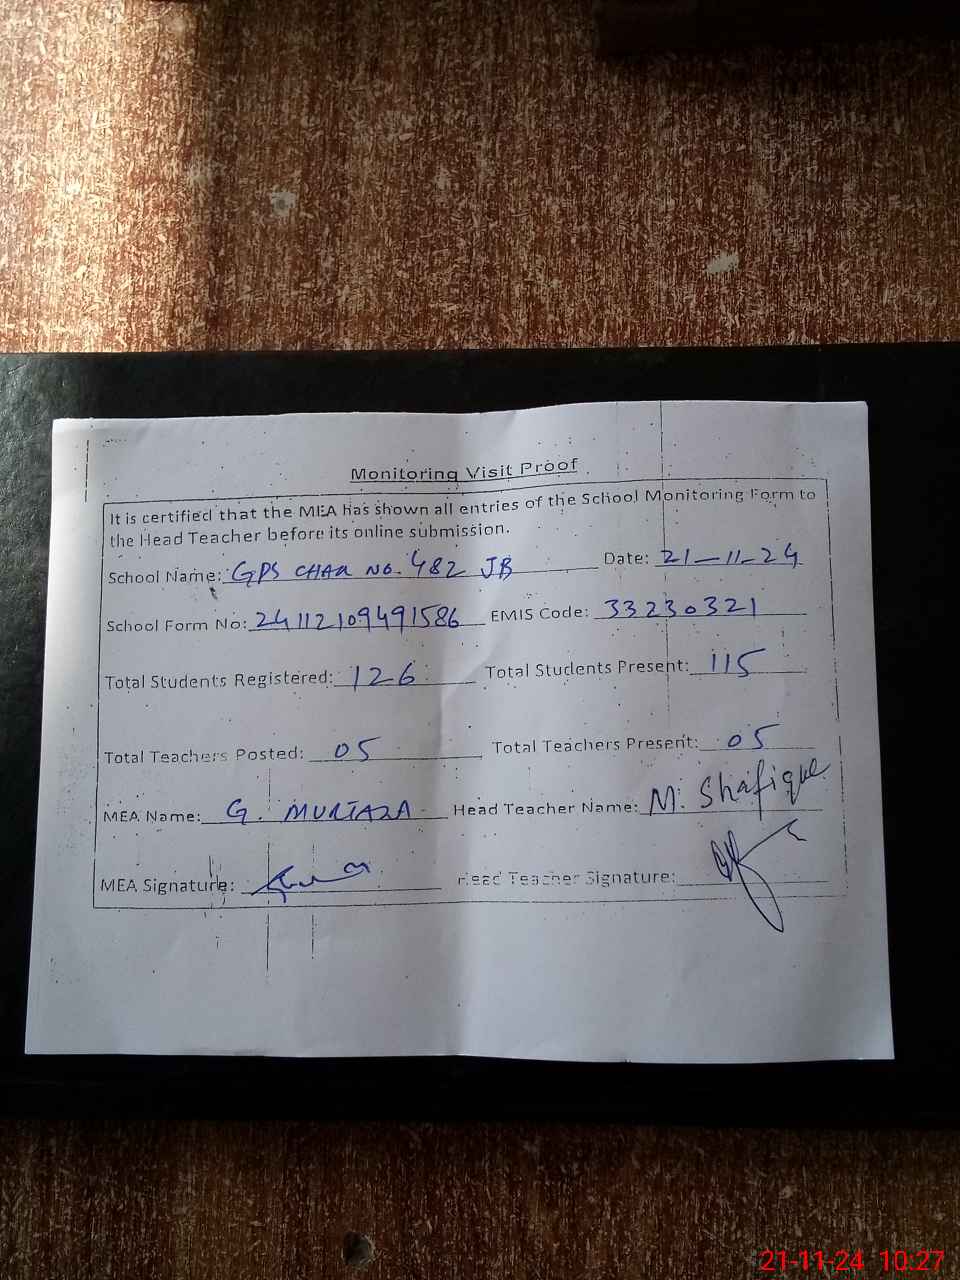 Monitoring Visit Proof
It is certified that the MEA has shown all entries of the School Monitoring Form to
the Head Teacher before its online submission.
School Name: GPS CHAK NO. 482 JB Date: 21-11-24
School Form No: 24112109491586 EMIS Code: 33230321
Total Students Registered: 126 Total Students Present: 115
Total Teachers Posted: 05 Total Teachers Present: 05
MEA Name: G. MURTAZA Head Teacher Name: M. Shafique
MEA Signature: Head Teacher Signature:
21-11-24 10:27